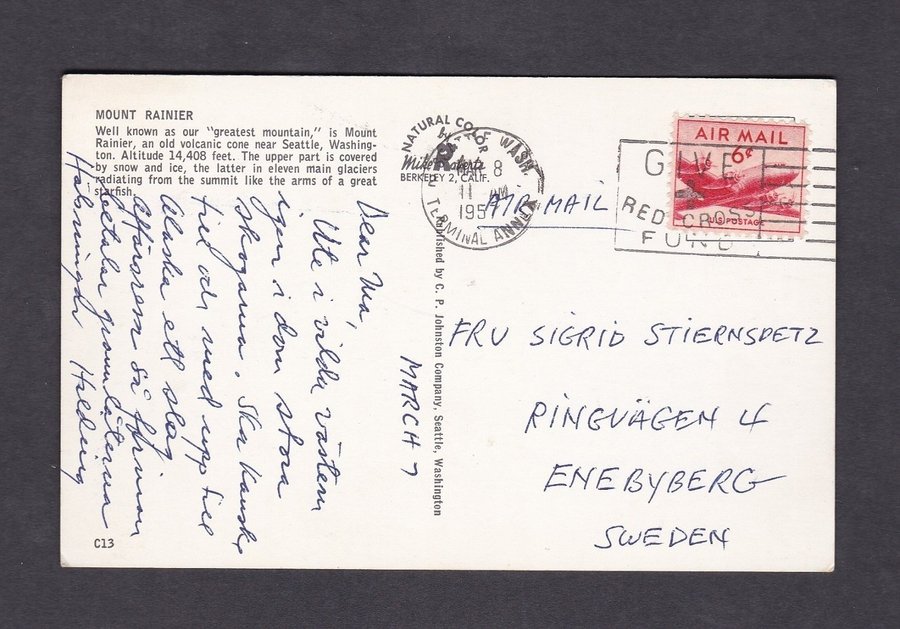 MOUNT RAINIER
Well known as our "greatest mountain," is Mount
Rainier, an old volcanic cone near Seattle, Washing-
ton. Altitude 14,408 feet. The upper part is covered
by snow and ice, the latter in eleven main glaciers
radiating from the summit like the arms of a great
starfish.
NATURAL COLOR
by
Mike Roberts
BERKELEY 2, CALIF.
WASH.
MAR 8
11 AM
195
TERMINAL ANNEX
AIR MAIL
6¢
U.S. POSTAGE
GIVE
RED CROSS
FUND
AIR MAIL
Dear Ma,
Ute i vilda västern
igen i dom stora
skogarna. Ska kanske
till och med upp till
Alaska ett slag
affärerna så
betalar
Hälsningar
MARCH 7
Published by C. P. Johnston Company, Seattle, Washington
FRU SIGRID STIERNSPETZ
RINGVÄGEN 4
ENEBYBERG
SWEDEN
C13